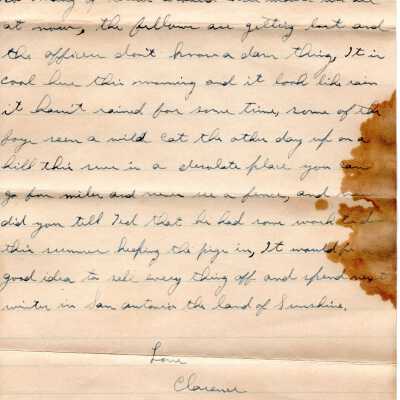 at now, the fellows are getting lost and
the officers don't know a darn thing, It is
cool here this morning and it look like rain
it hasn't rained for some time, some of the
boys seen a wild cat the other day up on a
hill this sure is a desolate place you can
go for miles and never see a fence, and
did you tell Ted that he had some work
this summer keeping the pigs in, It would be
good idea to sell every thing off and spend next
winter in San Antonio the land of Sunshine.
Love
Clarence